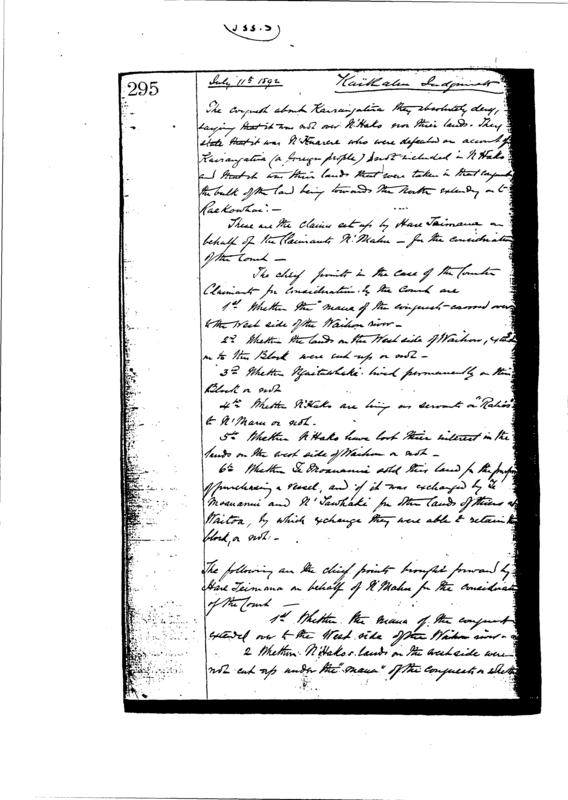 295
July 11th 1892 Judgment
The conquest about Kauwangatira they absolutely deny,
saying that it was not over N'Hako nor their lands. They
state that it was N' who were defeated on account of
(a foreign people) & not included in N'Hako
and that it was their lands that were taken in that conquest
the bulk of the land being towards the North extending on to
Raekowhai:—
These are the claims set up by Hare Teimana on
behalf of the Claimants N'Mahu — for the consideration
of the Court —
The chief points in the case of the Counter
Claimants for consideration by the Court are
1st Whether the "mana of the conquest" carried over
to the West side of the Waihou river —
2nd Whether the lands on the West side of Waihou,
on to this Block were cut up or not —
3rd Whether lived permanently on this
Block or not
4th Whether N'Hako are living as servants or "Rahis"
to N'Maru or not.
5th Whether N'Hako have lost their interest in the
lands on the west side of Waihou or not —
6th Whether Te Moananui sold this land for the purpose
of purchasing a vessel, and if it was exchanged by Te
Moananui and N' for other lands of theirs at
Waitoa, by which exchange they were able to retain this
block, or not:—
The following are the chief points brought forward by
Hare Teimana on behalf of N'Mahu for the consideration
of the Court —
1st Whether the mana of the conquest
extended over to the West side of the Waihou river —
2 Whether N'Hako's lands on the west side were
not cut up under the "mana" of the conquest